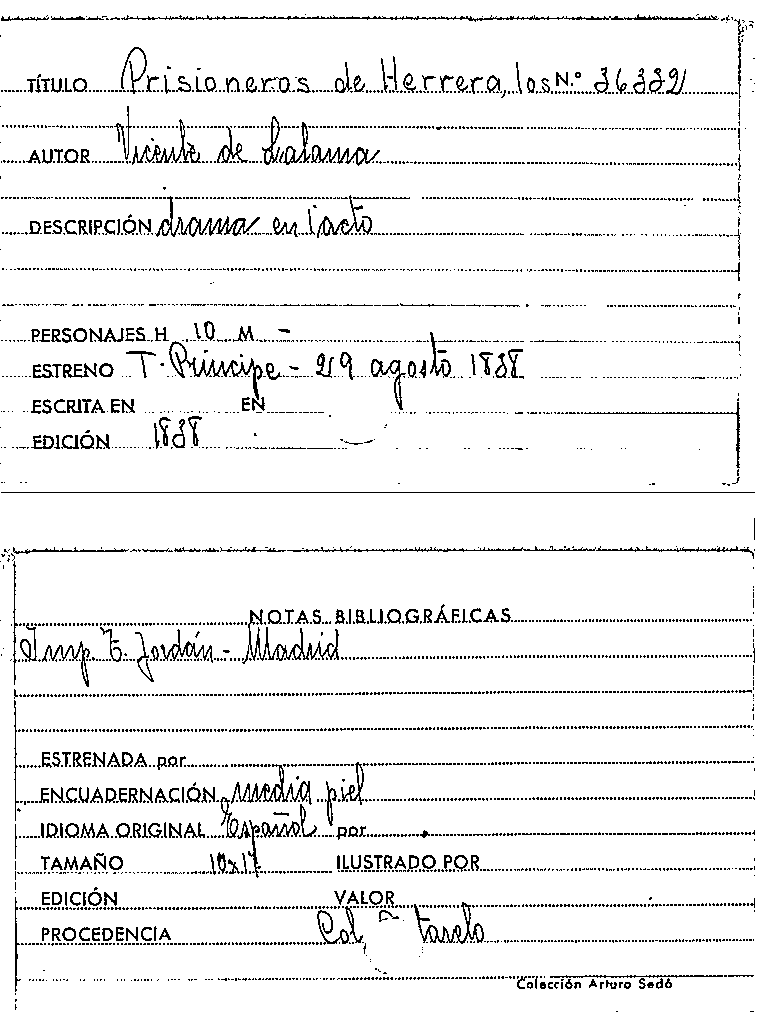 TÍTULO Prisioneros de Herrera, los N.º 36332
AUTOR Vicente de Lalama
DESCRIPCIÓN drama en 1 acto
PERSONAJES H 10 M -
ESTRENO T. Príncipe - 29 agosto 1838
ESCRITA EN EN
EDICIÓN 1838
NOTAS BIBLIOGRÁFICAS
Imp. E. Jordán - Madrid
ESTRENADA por
ENCUADERNACIÓN media piel
IDIOMA ORIGINAL Español por
TAMAÑO 10x17 ILUSTRADO POR
EDICIÓN VALOR
PROCEDENCIA Col.
Colección Arturo Sedó